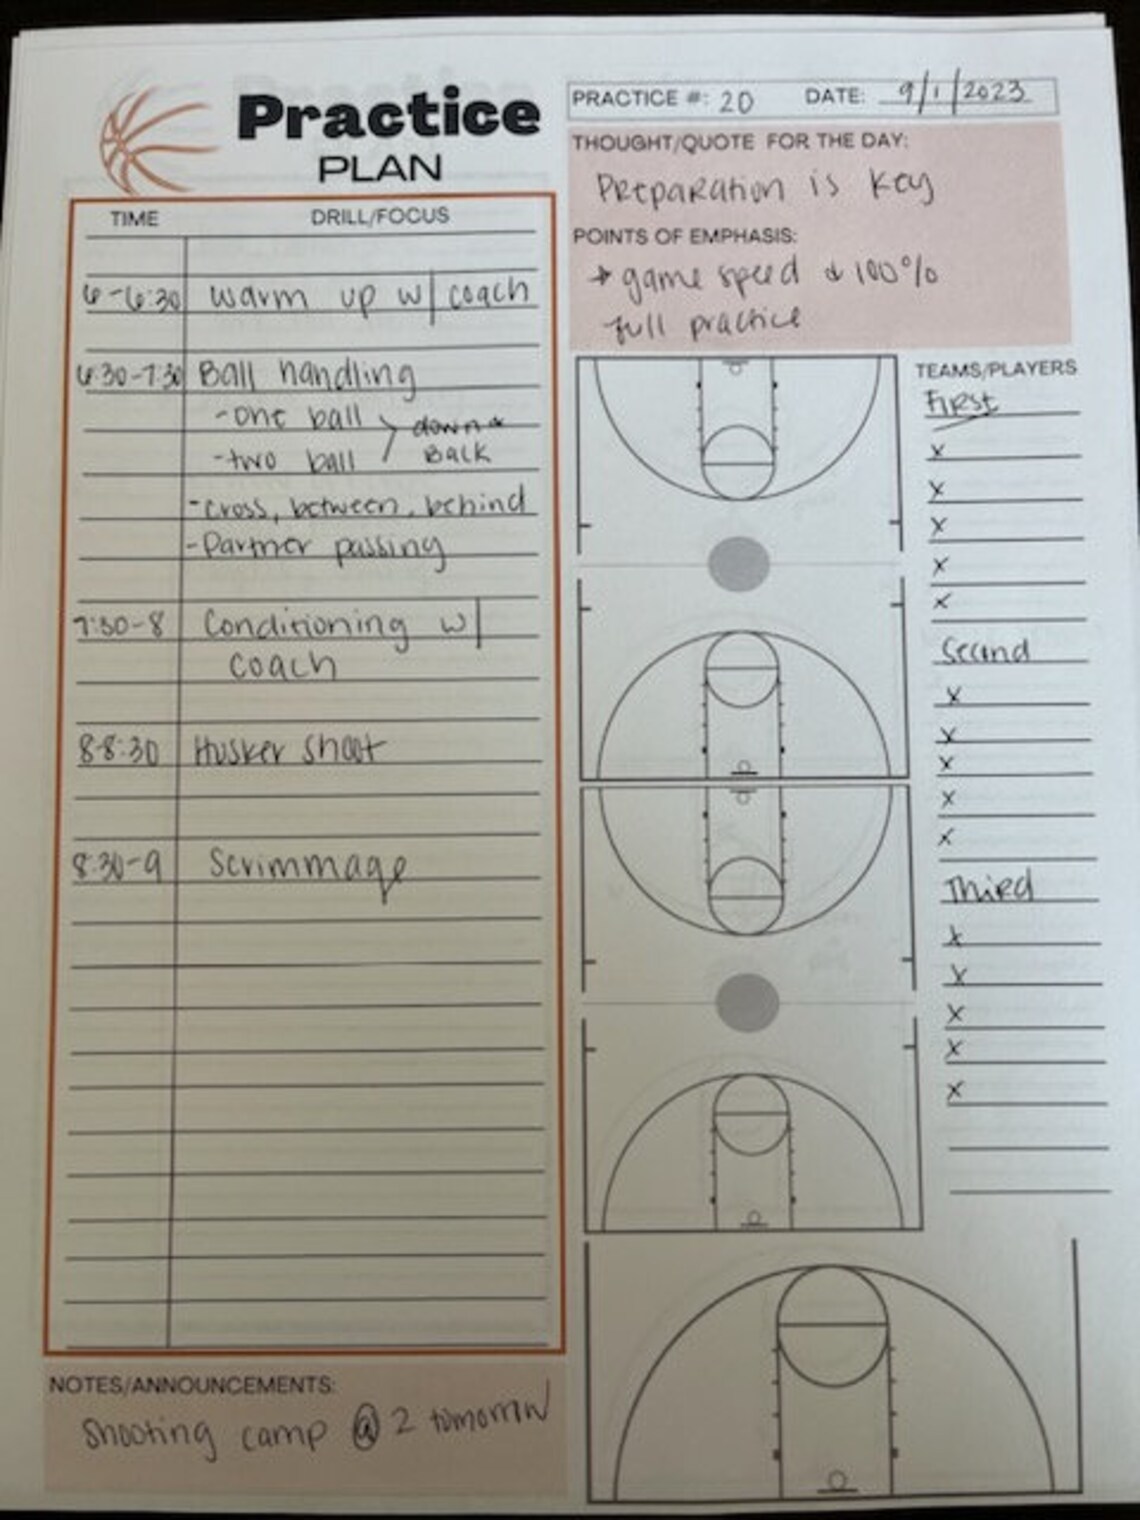 Practice
PLAN
PRACTICE #: 20 DATE: 9/1/2023
THOUGHT/QUOTE FOR THE DAY:
Preparation is key
POINTS OF EMPHASIS:
* game speed & 100%
full practice
TIME DRILL/FOCUS
6-6:30 warm up w/ coach
6:30-7:30 Ball handling
-one ball > down &
-two ball Back
-cross, between, behind
-Partner passing
7:30-8 Conditioning w/
coach
8-8:30 Husker shoot
8:30-9 Scrimmage
TEAMS/PLAYERS
First
x
x
x
x
x
Second
x
x
x
x
x
Third
x
x
x
x
x
NOTES/ANNOUNCEMENTS:
Shooting camp @ 2 tomorrow